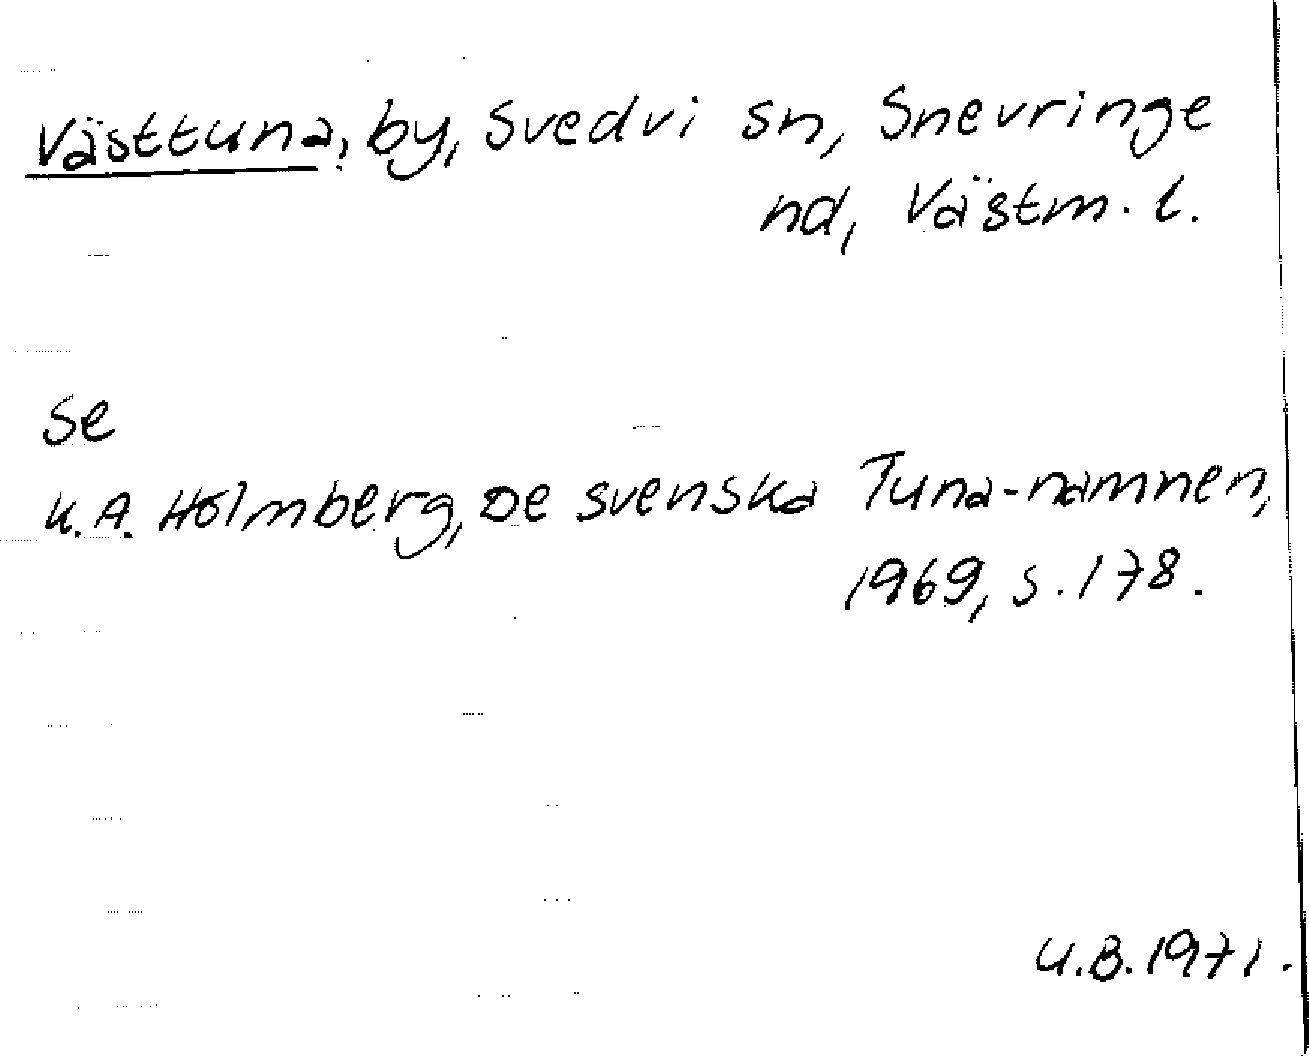 Västtuna, by, Svedvi sn, Snevringe
hd, Västm. l.
se
K.A. Holmberg, De svenska Tuna-namnen,
1969, s. 178.
U.B. 1971.